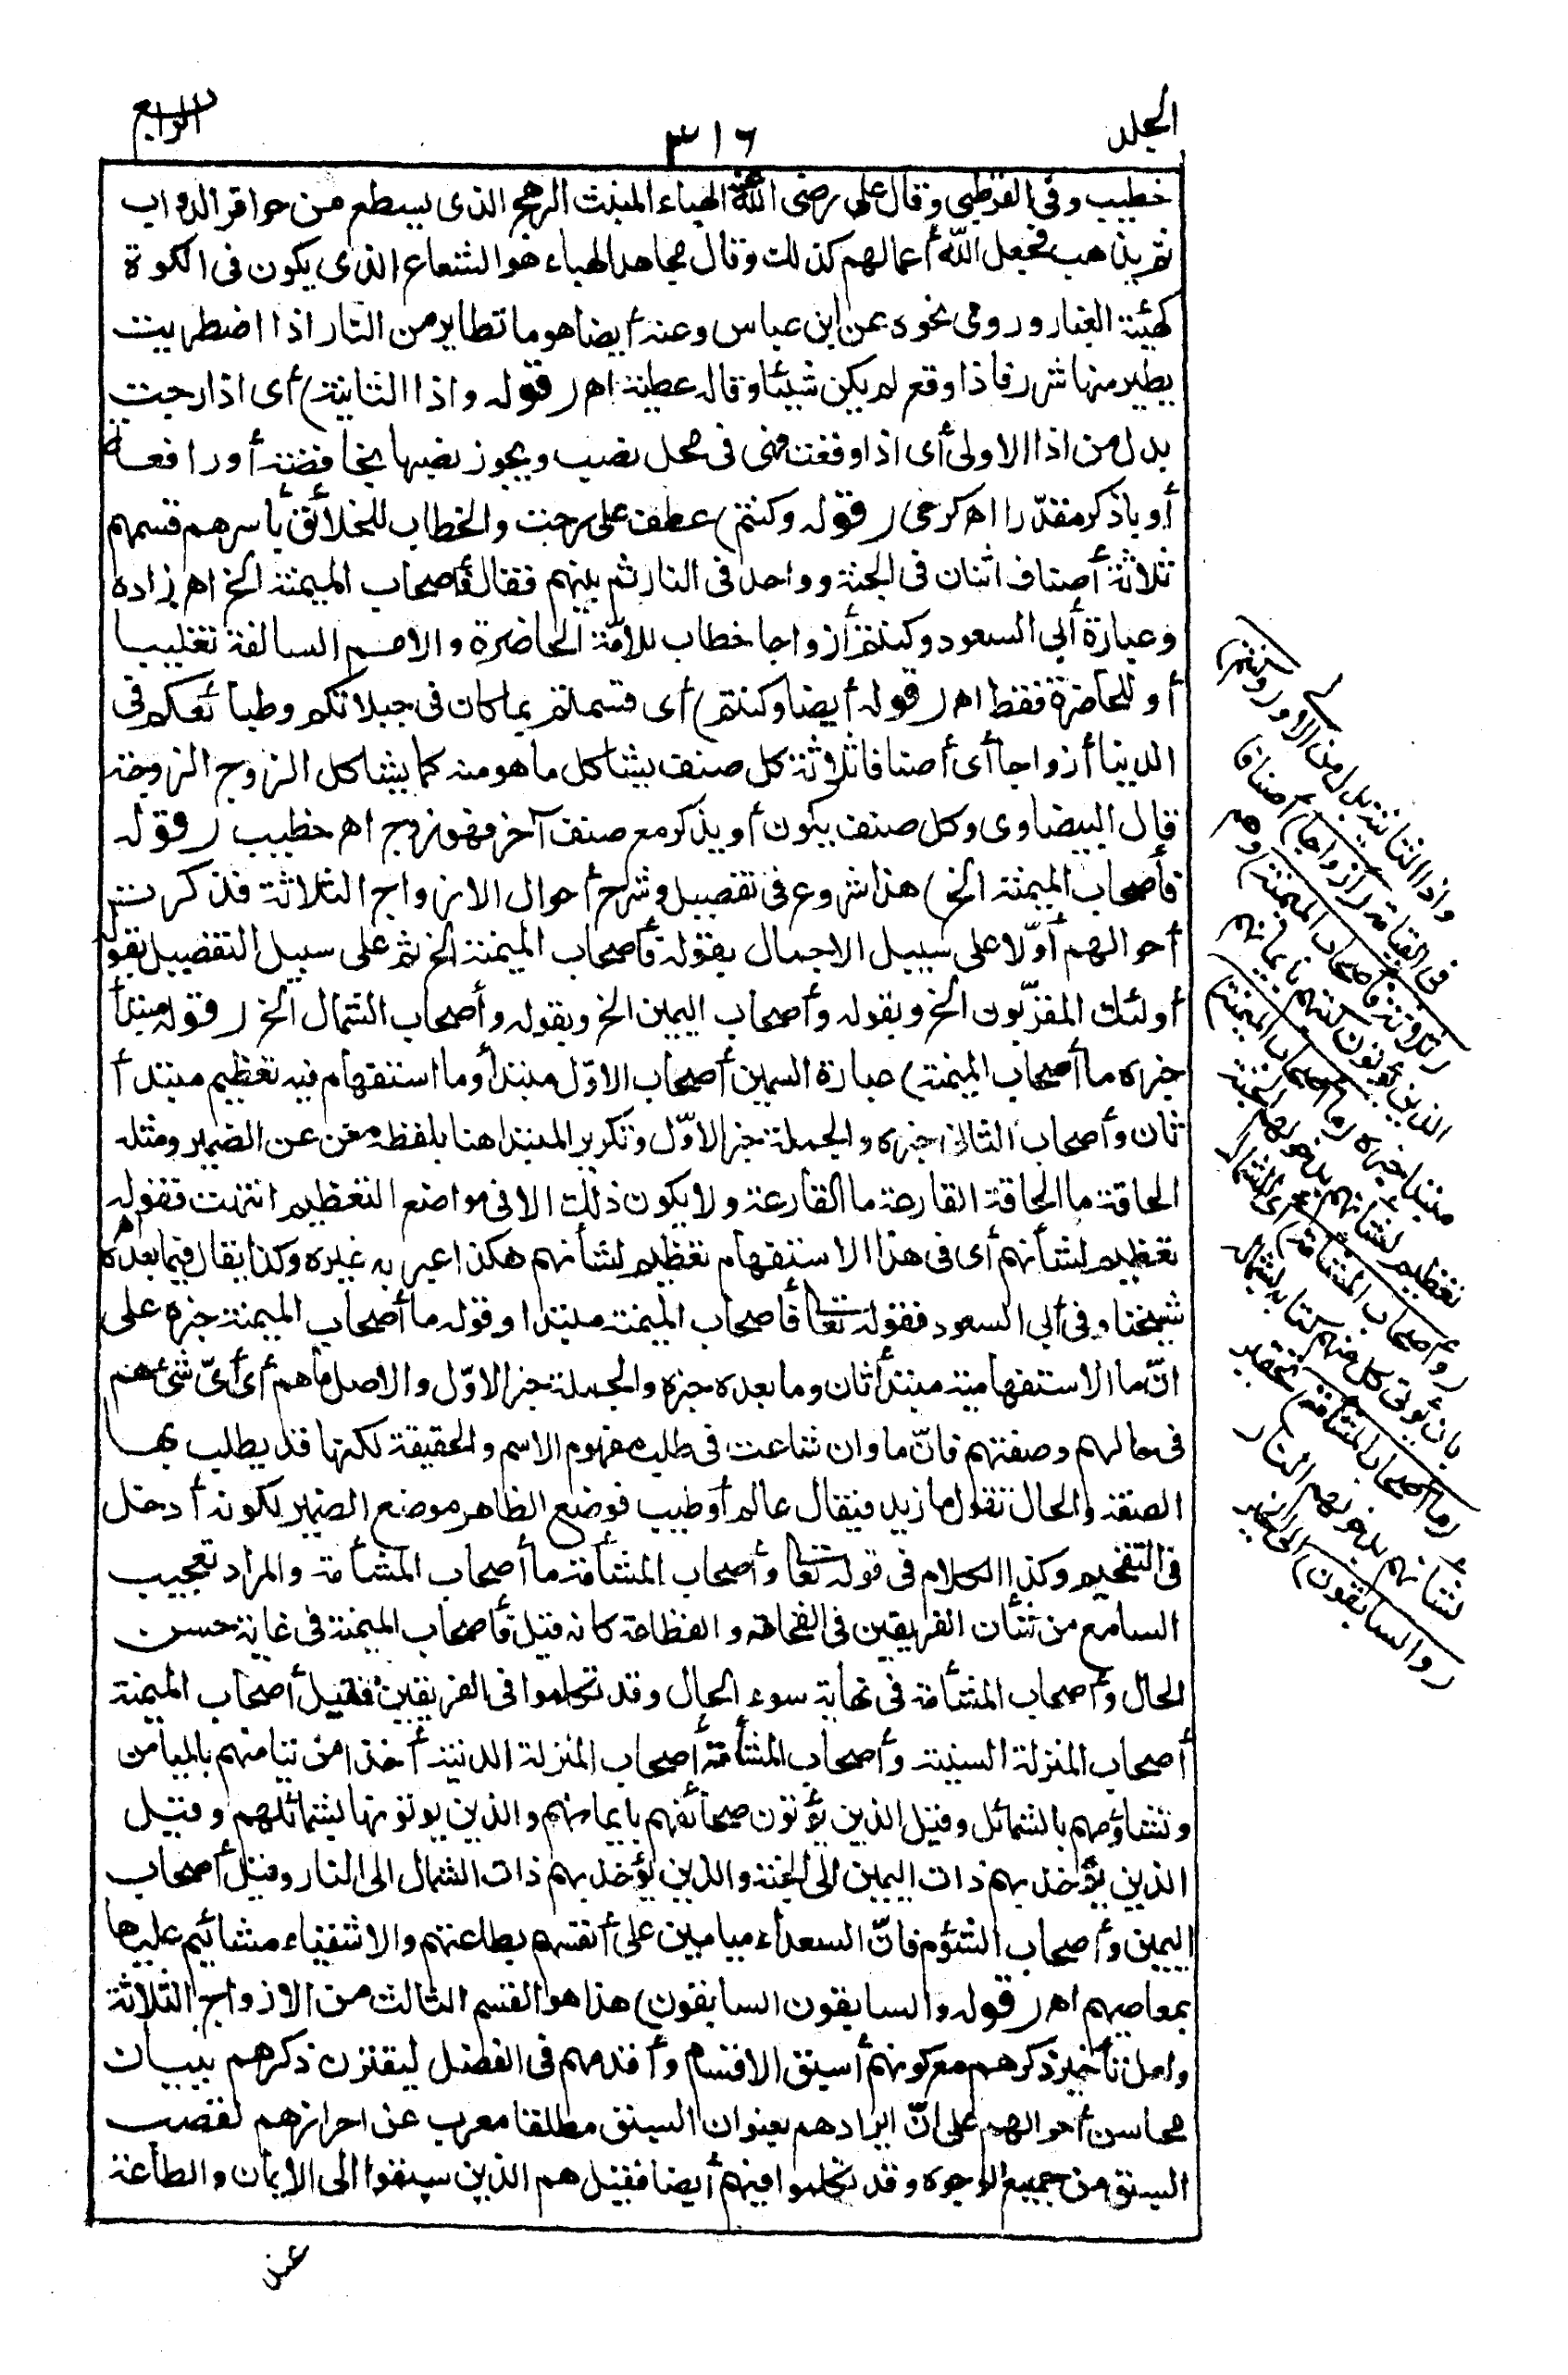 الجلد
٣١٦
الرابع
خطيب وفى القرطبى وقال على رضى الله عنه الهباء المنبث الرهج الذى يسطع من حوافر الدواب
ثم يذهب فجعل الله أعمالهم كذلك وقال مجاهد الهباء هو الشعاع الذى يكون فى الكوة
كهيئة الغبار وروى نحوه عن ابن عباس وعنه أيضا هو ما تطاير من النار اذا اضطربت
يطير منها شرر فاذا وقع لم يكن شيئا وقاله عطية اهر (قوله واذا الثانية) أى اذا رجت
بدل من اذا الاولى أى اذا وقعت فهى فى محل نصب ويجوز نصبها بخافضة أو رافعة
أو باذكر مقدّرا اهر كرخى (قوله وكنتم) عطف على رجت والخطاب للخلائق بأسرهم قسمهم
ثلاثة أصناف اثنان فى الجنة وواحد فى النار ثم بينهم فقال فأصحاب الميمنة الخ اهر زاده
وعبارة أبى السعود وكنتم أزواجا خطاب للامّة الحاضرة والامم السالفة تغليبا
أو للحاضرة فقط اهر (قوله أيضا وكنتم) أى قسمتم بما كان فى جبلاتكم وطبائعكم فى
الدينا أزواجا أى أصنافا ثلاثة كل صنف يشاكل ما هو منه كما يشاكل الزوج الزوجة
قال البيضاوى وكل صنف يكون أو يذكر مع صنف آخر فهو زوج اهر خطيب (قوله
فأصحاب الميمنة الخ) هذا شروع فى تفصيل وشرح أحوال الازواج الثلاثة فذكرت
أحوالهم أوّلا على سبيل الاجمال بقوله فأصحاب الميمنة الخ ثم على سبيل التفصيل بقوله
أولئك المقرّبون الخ وبقوله وأصحاب اليمين الخ وبقوله وأصحاب الشمال الخ (قوله مبتدأ
خبره ما أصحاب الميمنة) عبارة السمين أصحاب الاوّل مبتدأ وما استفهام فيه تعظيم مبتدأ
ثان وأصحاب الثانى خبره والجملة خبر الاوّل وتكرير المبتدا هنا بلفظه مغن عن الضمير ومثله
الحاقة ما الحاقة القارعة ما القارعة ولا يكون ذلك الا فى مواضع التعظيم انتهت فقوله
تعظيم لشأنهم أى فى هذا الاستفهام تعظيم لشأنهم هكذا عبر به غيره وكذا يقال فيما بعده اهر
شيخنا وفى أبى السعود فقوله تعا فأصحاب الميمنة مبتدا وقوله ما أصحاب الميمنة خبره على
انّ ما الاستفهامية مبتدأ ثان وما بعده خبره والجملة خبر الاوّل والاصل ما هم أى أىّ شئ هم
فى حالهم وصفتهم فانّ ما وان شاعت فى طلب مفهوم الاسم والحقيقة لكنها قد يطلب بها
الصفة والحال تقول ما زيد فيقال عالم أو طبيب فوضع الظاهر موضع الضمير لكونه أدخل
فى التفخيم وكذا الكلام فى قوله تعا وأصحاب المشأمة ما أصحاب المشأمة والمراد تعجيب
السامع من شأن الفريقين فى الفخامة والفظاعة كانه قيل فأصحاب الميمنة فى غاية حسن
الحال وأصحاب المشأمة فى نهاية سوء الحال وقد تكلموا فى الفريقين فقيل أصحاب الميمنة
أصحاب المنزلة السنية وأصحاب المشأمة أصحاب المنزلة الدنية أخذا من تيامنهم بالميامن
وتشاؤمهم بالشمائل وقيل الذين يؤتون صحائفهم بايمانهم والذين يوتونها بشمائلهم وقيل
الذين يؤخذ بهم ذات اليمين الى الجنة والذين يؤخذ بهم ذات الشمال الى النار وقيل أصحاب
اليمين وأصحاب الشؤم فانّ السعداء ميامين على أنفسهم بطاعتهم والاشقياء مشائيم عليها
بمعاصيهم اهر (قوله والسابقون السابقون) هذا هو القسم الثالث من الازواج الثلاثة
ولعل تأخير ذكرهم مع كونهم أسبق الاقسام وأقدمهم فى الفضل ليقترن ذكرهم ببيان
محاسن أحوالهم على انّ ايرادهم بعنوان السبق مطلقا معرب عن احرازهم لقصب
السبق من جميع الوجوه وقد تكلموا فيهم أيضا فقيل هم الذين سبقوا الى الايمان والطاعة
عند
واذا الثانية بدل من الاولى (وكنتم)
فى القيامة (أزواجا) أصنافا
(ثلاثة فأصحاب الميمنة) وهم
الذين يؤتون كتبهم بايمانهم
مبتدا خبره (ما أصحاب الميمنة)
تعظيم لشأنهم بدخولهم الجنة
(وأصحاب المشأمة) أى الشمال
بان يؤتى كل منهم كتابه بشماله
(ما أصحاب المشأمة) تحقير
لشأنهم بدخولهم النار
(والسابقون) الى الخير